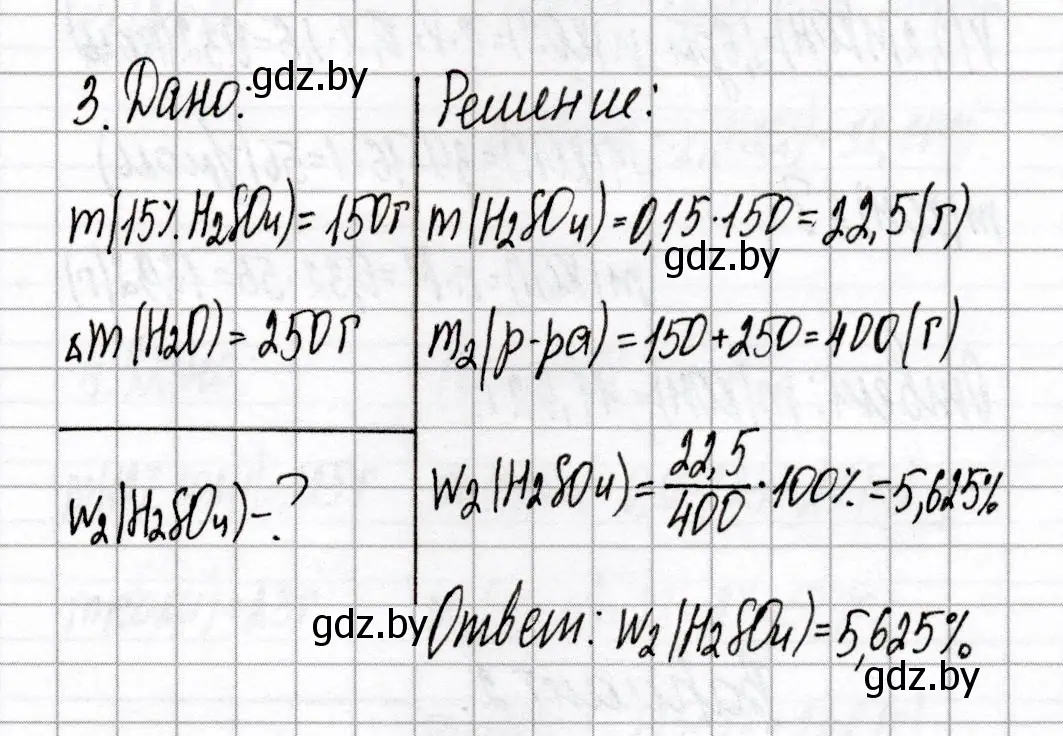 3. Дано:
gdz.by
m(15% H2SO4) = 150г
Δm(H2O) = 250г
w2(H2SO4) - ?
Решение:
m(H2SO4) = 0,15 · 150 = 22,5 (г)
gdz.by
m2(р-ра) = 150 + 250 = 400 (г)
w2(H2SO4) = 22,5/400 · 100% = 5,625%
gdz.by
Ответ: w2(H2SO4) = 5,625%
gdz.by